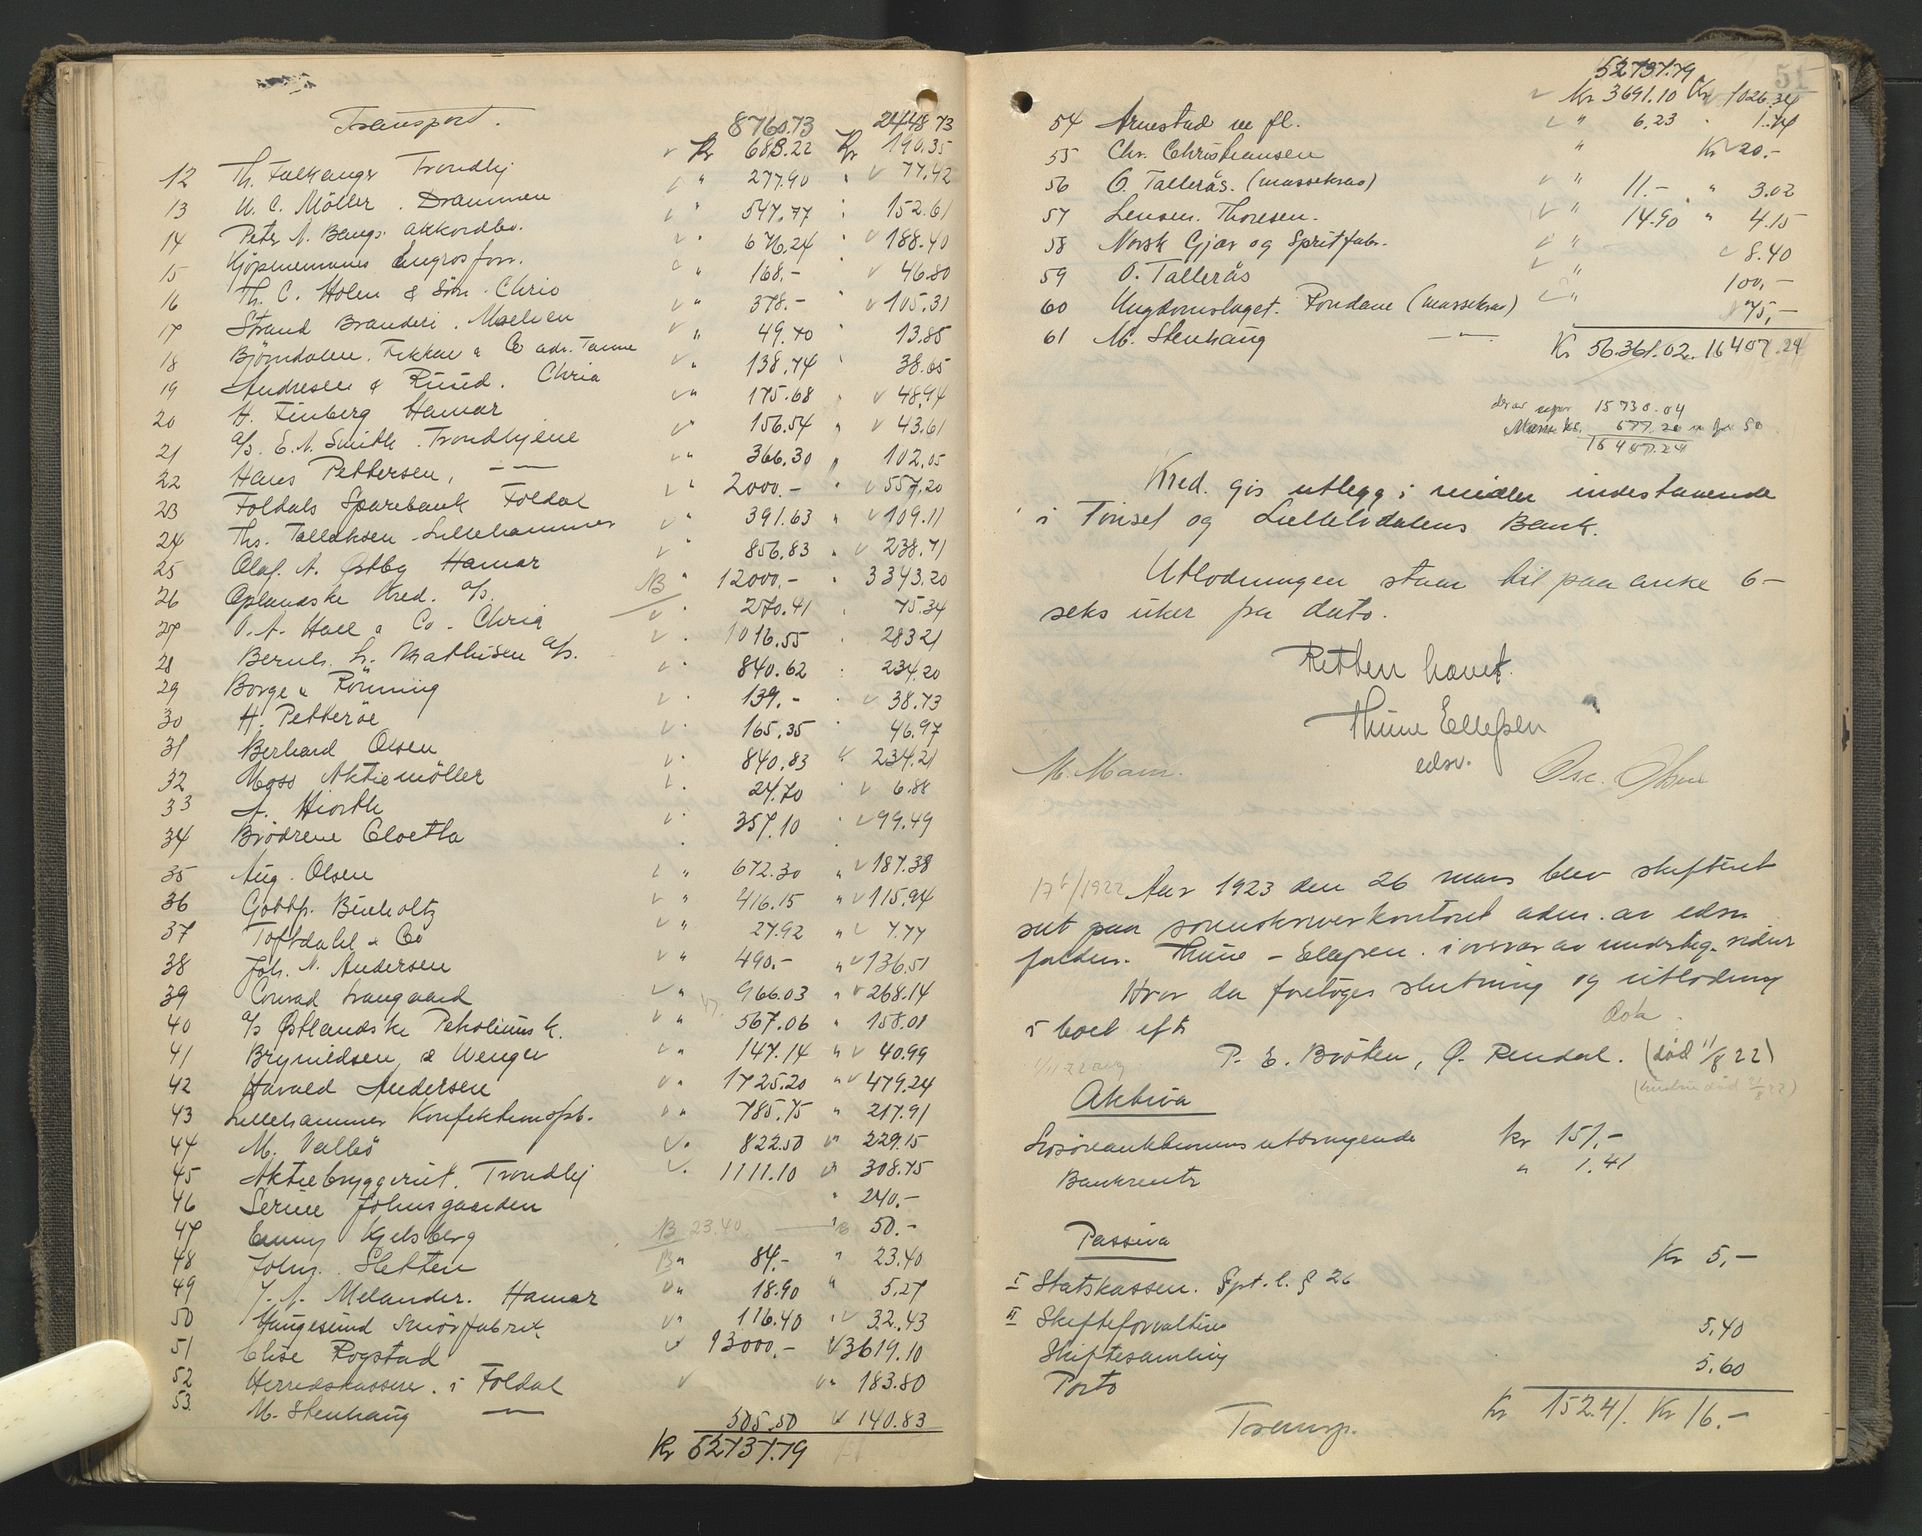 Transport. 8760.73 2448 73
12 Th. Falkanger Trondhj Kr 683.22 Kr 190.35
13 N. C. Möller. Drammen " 277.90 " 77.42
14 Peter N. Bangs akkordbo. " 547.77 " 152.61
15 Kjöpmennenes Engrosforr. " 676.24 " 188.40
16 Th. C. Holen & Sön. Chria " 168.- " 46.80
17 Strand Brænderi. Moelven " 378.- " 105.31
18 Björndalen. & Co adr. " 49.70 " 13.85
19 Andresen & Ruud. Chria " 138.74 38.65
20 H. Finberg Hamar " 175.68 " 48.94
21 A/S. E. A. Smith. Trondhjem " 156.54 " 43.61
22 Hans Pettersen, - — " 366.30 " 102.05
23 Foldals Sparebank Foldal " 2000.- " 557.20
24 Ths. Tallaksen. Lillehammer " 391.63 " 109.11
25 Olaf. A. Østby Hamar 856.83 " 238.71
26 Oplandske Kred. A/S. NB " 12000.- " 3343.20
27 O. A. Hall & Co. Chria " 270.41 " 75.34
28 Bernh. L. Mathisen A/S. " 1016.55 " 283 21
29 Borge & Rönning " 840.62 " 234.20
30 H. Petteröe " 139.- " 38.73
31 Berhard Olsen " 165.35 46.97
32 Moss Aktiemöller " 840.83 " 234.21
33 A. Hiorth " 24.70 " 6.88
34 Brödrene Cloetta " 357.10 " 99.49
35 Aug. Olsen " 672.30 " 187.38
36 Gottfr. Buholtz " 416.15 " 115.94
37 Toftdahl & Co " 27.92 " 7.77
38 Joh. N. Andersen " 490.- " 136.51
39 Conrad Langaard " 966.03 " 268.14
40 A/S Østlandske Petroleums k. " 567.06 " 158.01
41 Brynildsen & Wenger " 147.14 " 40.99
42 Harald Andersen " 1725.20 " 479.24
43 Lillehammer Konfektionsfab. " 785.75 " 217.91
44 M. Valbö " 822.50 " 229.15
45 Aktiebryggeriet. Trondhj " 1111.10 " 308.75
46 Serine Johnsgaarden " 240.-
47 Enny Kjelsberg B 23.40 " 50.-
48 Johs. Sletten B " 84.- " 23.40
49 J. A. Melander. Hamar " 18.90 " 5.27
50 Haugesund Smörfabrik " 116.40 " 32.43
51 Elise Rogstad 13000.- 3619.10
52 Herredskasserer. i Foldal " 183.80
53. M. Stenhaug — 505.50 140.83
Kr 52737.79
51
52737.79
Kr 3691.10 Kr 1026.34
54 Arnestad m fl. " 6.23 " 1.74
55 Chr. Christiansen " Kr 20.-
56 O. Tallerås. (massekrav) " 11.- " 3.02
57 Lensm. Thoresen. " 14.90 " 4.15
58 Norsk Gjær og Spritfabr. " 8.40
59 O. Tallerås " 100,-
60 Ungdomslaget. Rondane (massekrav) " 75,-
61 M. Stenhaug - —
Kr 56.361.02. 16407.24
derav 15730.04
Masse kr. 677.20
16407.24
Kred. gis utlegg i midler indestaaende
i Tönset og Lilleelvdalens Bank.
Utlodningen staar til paaanke 6-
seks uker fra dato.
Retten hævet.
Thune Ellefsen
edsv.
M. Moen. Osc. Olsen
17 6/1922 Aar 1923 den 26 mars blev skifteret
sat paa sorenskriverkontoret adm. av edsv
fuldm. Thune - Ellefsen. i overvær av underteg. vidner
Hvor da foretoges slutning og utlodning
i boet efter
P. E. Bråten, Ø. Rendal. (död 11/8 22)
Aktiva
Lösöreauktionens utbringende kr 151,-
Bankrenter " 1.41
Passiva
I Statskassen. Spt. l. § 26 Kr 5,-
II Skifteforvaltning
Skiftesamling 5.40
Porto 5.60
Transp. Kr 152.41. Kr 16.-